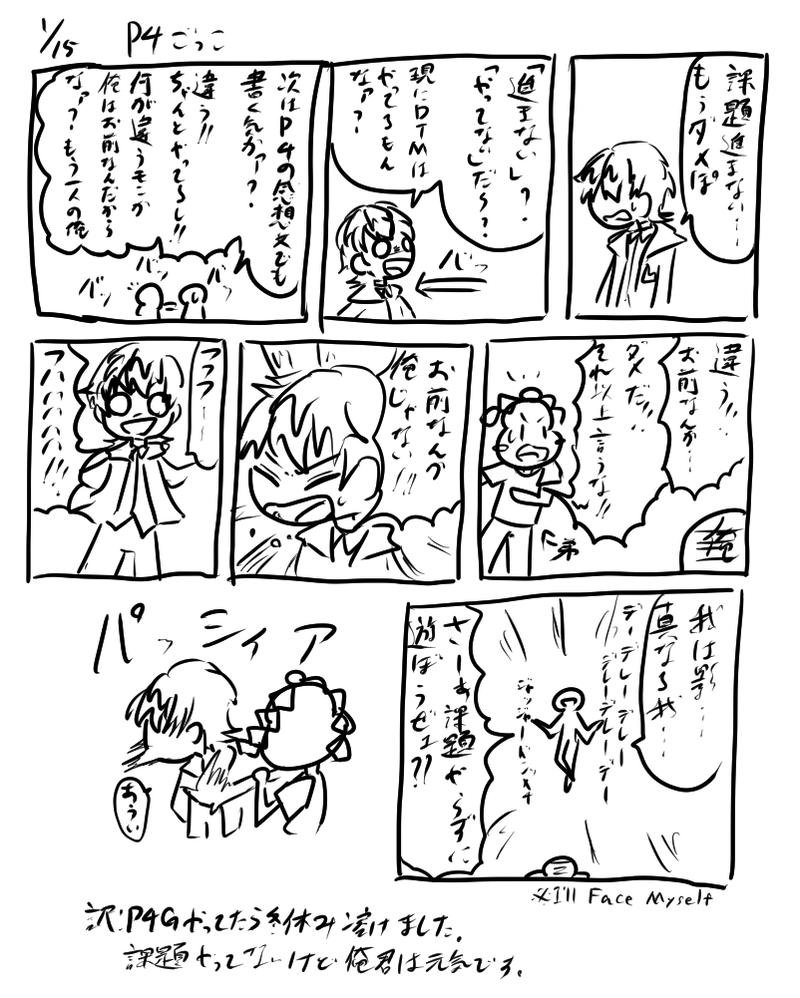 1/15 P4ごっこ
課題進まない…
もうダメぽ
「進まないし?
「やってない」だろ?
現にDTMは
やってるもん
なァ?
バッ
次はP4の感想文でも
書く気かァ?
違う!!
ちゃんとやってるし!!
何が違うモンか
俺はお前なんだから
なァ?もう一人の俺
バッ
バッ
バッ
違う!!
お前なんか…
ダメだ!!
それ以上言うな!!
俺
弟
お前なんか
俺じゃない!!!
フフフ…
フハハハハハ!!!
我は影…
真なる我…
デーデレーデレー
デレーデレーデレーデー
さーぁ課題やらずに
遊ぼうゼェ??
※I'll Face Myself
パッシィア
おうい
訳:P4Gやってたら冬休み溶けました。
課題やってないけど俺君は元気です。